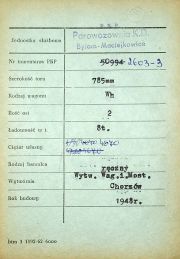 P K P
Jednostka służbowa Parowozownia K.D.
Bytom-Maciejkowice
Nr inwentarza PKP 50994 2603-3
Szerokość toru 785mm
Rodzaj wagonu Wh
Ilość osi 2
Ładowność w t 8t.
Ciężar własny
Rodzaj hamulca ręczny
Wytwórnia Wytw. Wag. i Most.
Chorzów
Rok budowy 1948r.